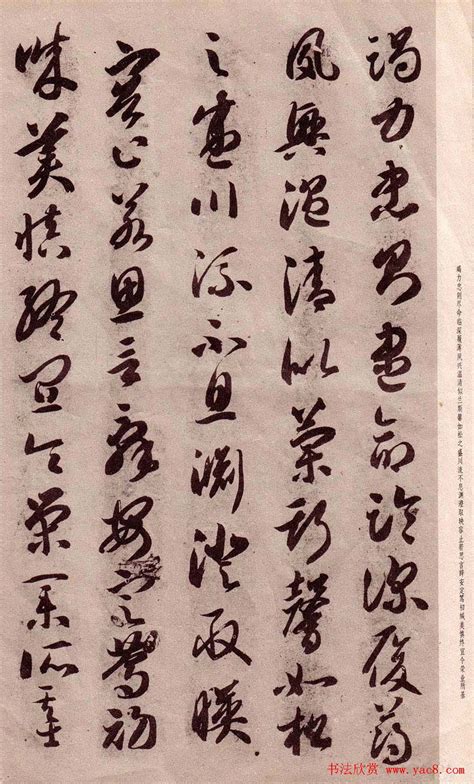 竭力忠則盡命臨深履薄
夙興温清似蘭斯馨如松
之盛川流不息淵澄取暎
容止若思言辭安定篤初
誠美慎終宜令榮業所基
竭力忠则尽命临深履薄夙兴温清似兰斯馨如松之盛川流不息渊澄取映容止若思言辞安定笃初诚美慎终宜令荣业所基
书法欣赏 www.yac8.com